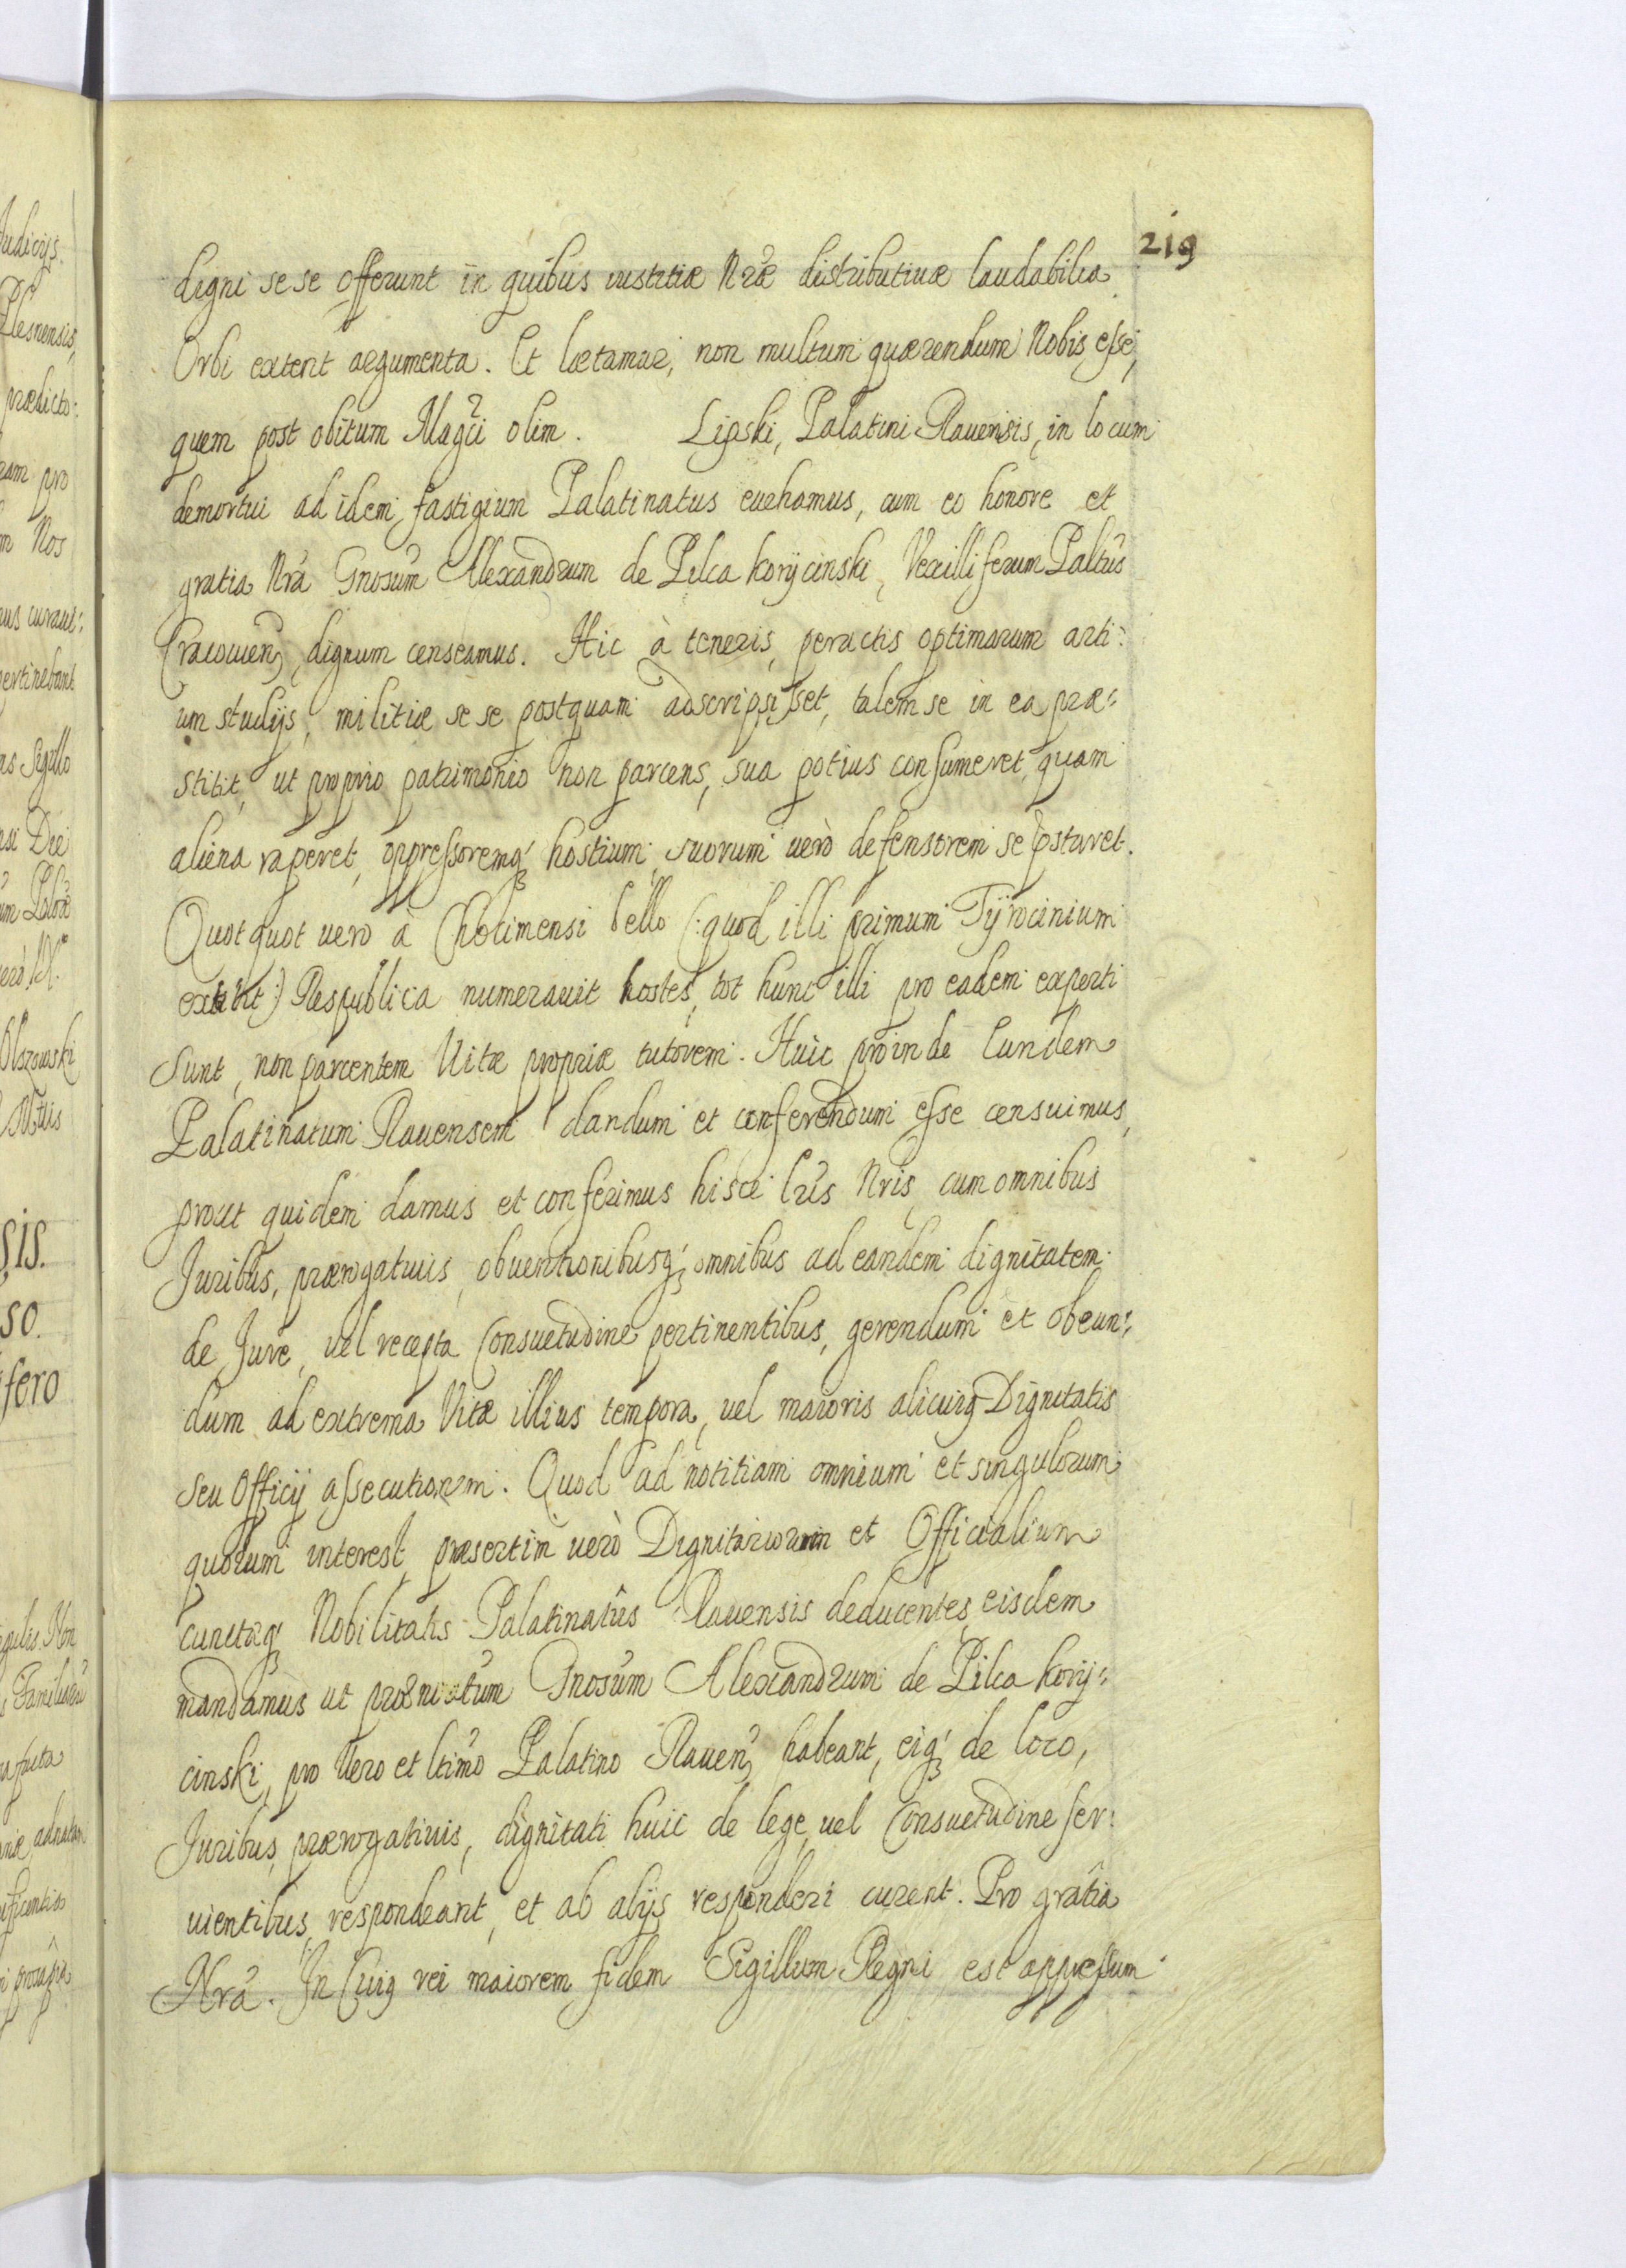 219
digni se se offerunt in quibus iustitiæ Nræ distributiuæ laudabilia
Orbi extent argumenta. Et lætamur, non multum quærendum Nobis esse,
quem post obitum Magci olim. Lipski, Palatini Rauensis, in locum
demortui ad idem fastigium Palatinatus euehamus, cum eo honore et
gratia Nrâ Gnosum Alexandrum de Pilca Korÿcinski, Vexilliferum Paltûs
Cracouien, dignum censeamus. Hic à teneris, peractis optimarum arti:
um studijs, militiæ se se postquam adscripsisset, talem se in ea præ:
stitit, ut proprio patrimonio non parcens, sua potius consumeret, quam
aliena raperet, oppressoremq; hostium, suorum uerò defensorem se pstaret.
Quotquot uero à Chotimensi bello (: quod illi primum Tÿrocinium
extitit :) Respublica numerauit hostes, tot hunc illi pro eadem experti
sunt, non parcentem Vitæ propriæ tutorem. Huic proinde Eundem
Palatinatum Rauensem dandum et conferendum esse censuimus,
prout quidem damus et conferimus hisce lris Nris, cum omnibus
Juribus, prærogatiuis, obuentionibusq; omnibus ad eandem dignitatem
de Jure, uel recepta Consuetudine pertinentibus, gerendum et obeun:
dum ad extrema Vitæ illius tempora, uel maioris alicuiq Dignitatis
seu Officij assecutionem. Quod ad notitiam omnium et singulorum
quorum interest, præsertim uerò Dignitariorum et Officialium
cunctaq; Nobilitatis Palatinatûs Rauensis deducentes, eisdem
mandamus ut prænoîatum Gnosum Alexandrum de Pilca Korij:
cinski, pro Vero et ltimo Palatino Rauen, habeant, eiq; de loco,
Juribus, prærogatiuis, dignitati huic de lege, uel Consuetudine ser:
uientibus, respondeant, et ab alijs responderi curent. Pro gratia
Nrâ. In Cuiq rei maiorem fidem Sigillum Regni est appressum